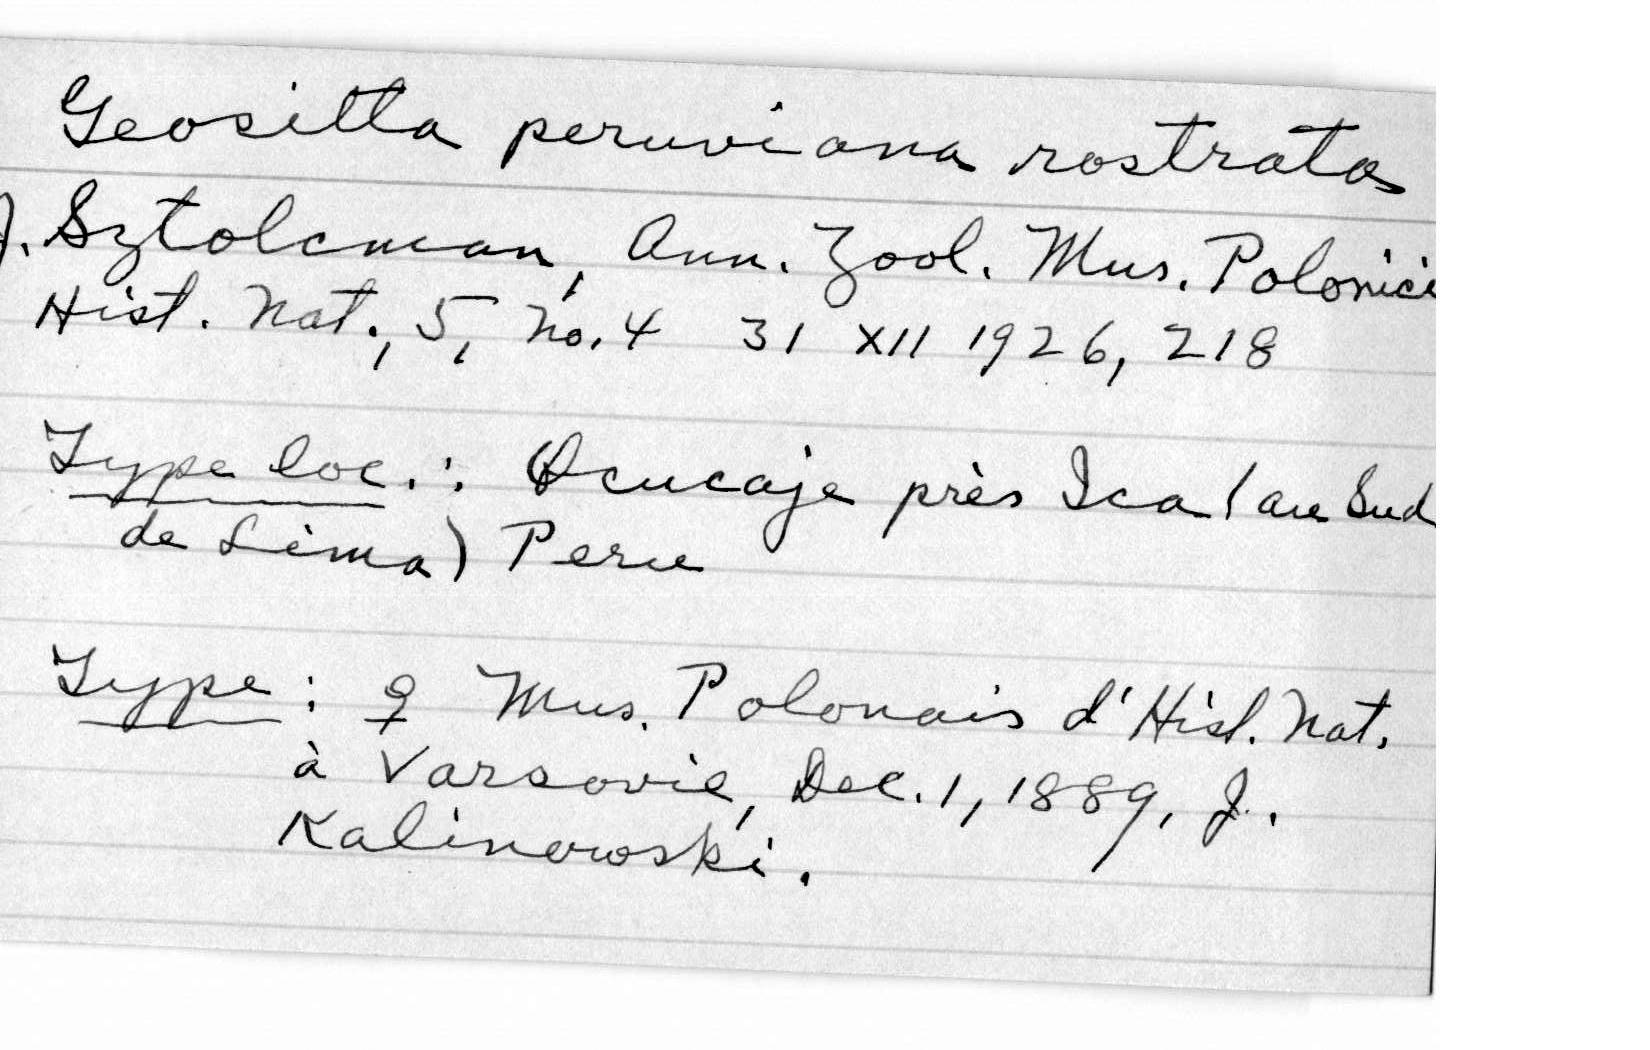 Geositta peruviana rostrata
J. Sztolcman, Ann. Zool. Mus. Polonici
Hist. Nat., 5, No. 4 31 XII 1926, 218
Type loc.: Ocucaje près Ica (au Sud
de Lima) Peru
Type: ♀ Mus. Polonais d'Hist. Nat.
à Varsovie, Dec. 1, 1889, J.
Kalinowski.